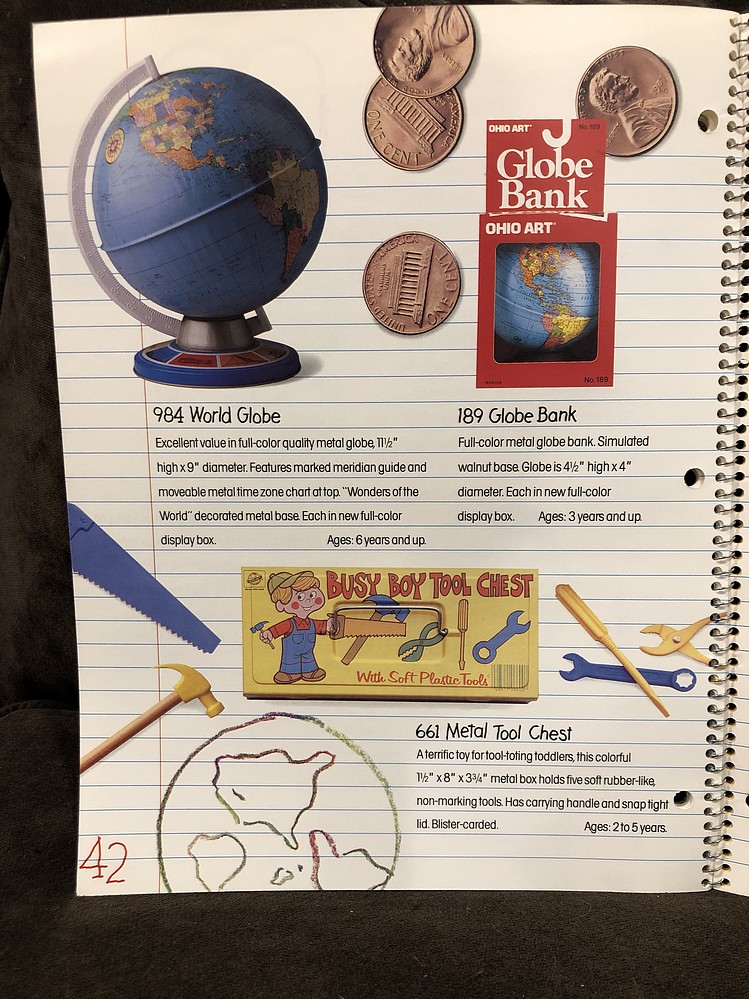 ONE CENT
OHIO ART
No. 189
Globe
Bank
OHIO ART
No. 189
UNITED
AMERICA
ONE CENT
984 World Globe
Excellent value in full-color quality metal globe, 11½"
high x 9" diameter. Features marked meridian guide and
moveable metal time zone chart at top. "Wonders of the
World" decorated metal base. Each in new full-color
display box. Ages: 6 years and up.
189 Globe Bank
Full-color metal globe bank. Simulated
walnut base. Globe is 4½" high x 4"
diameter. Each in new full-color
display box. Ages: 3 years and up.
BUSY BOY TOOL CHEST
With Soft Plastic Tools
661 Metal Tool Chest
A terrific toy for tool-toting toddlers, this colorful
1½" x 8" x 3¾" metal box holds five soft rubber-like,
non-marking tools. Has carrying handle and snap tight
lid. Blister-carded. Ages: 2 to 5 years.
42